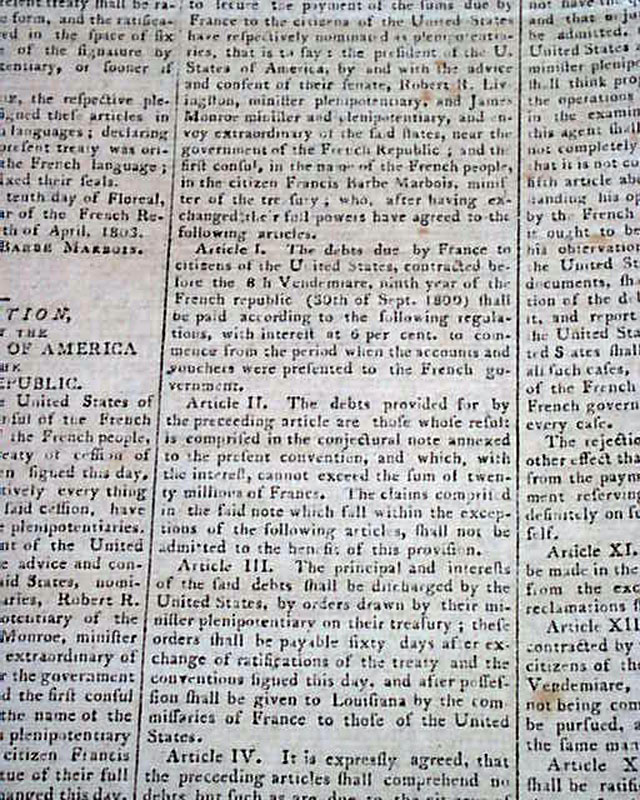 recent treaty shall be ra-
e form, and the ratifica-
ed in the space of six
e of the signature by
tentiary, or sooner if
the respective ple-
signed theſe articles in
h languages; declaring
preſent treaty was ori-
the French language;
ixed their ſeals.
tenth day of Floreal,
ar of the French Re-
th of April, 1803.
BARBE MARBOIS.
TION,
T THE
OF AMERICA
EPUBLIC.
e United States of
rſul of the French
the French people,
reaty of ceſſion of
en ſigned this day,
tively every thing
ſaid ceſſion, have
e plenipotentiaries.
nt of the United
e advice and con-
aid States, nomi-
aries, Robert R.
otentiary of the
Monroe, miniſter
extraordinary of
r the government
d the firſt conſul
the name of the
s plenipotentiary
citizen Francis
tue of their full
hanged this day,
to ſecure the payment of the ſums due by
France to the citizens of the United States
have reſpectively nominated as plenipotentia-
ries, that is to ſay: the preſident of the U.
States of America, by and with the advice
and conſent of their ſenate, Robert R. Liv-
ingſton, miniſter plenipotentiary, and James
Monroe miniſter and plenipotentiary, and en-
voy extraordinary of the ſaid ſtates, near the
government of the French Republic; and the
firſt conſul, in the name of the French people,
in the citizen Francis Barbe Marbois, miniſ
ter of the treſury; who, after having ex-
changed their full powers have agreed to the
following articles.
Article I. The debts due by France to
citizens of the United States, contracted be-
fore the 8 h Vendemiare, ninth year of the
French republic (30th of Sept. 1800) ſhall
be paid according to the following regula-
tions, with intereſt at 6 per cent. to com-
mence from the period when the accounts and
vouchers were preſented to the French go-
vernment.
Article II. The debts provided for by
the preceding article are thoſe whoſe reſult
is compriſed in the conjectural note annexed
to the preſent convention, and which, with
the intereſt, cannot exceed the ſum of twen-
ty millions of Francs. The claims compriſed
in the ſaid note which fall within the excep-
tions of the following articles, ſhall not be
admitted to the benefit of this proviſion.
Article III. The principal and intereſts
of the ſaid debts ſhall be diſcharged by the
United States, by orders drawn by their mi-
niſter plenipotentiary on their treaſury; theſe
orders ſhall be payable ſixty days after ex-
change of ratifications of the treaty and the
conventions ſigned this day, and after poſſeſ-
ſion ſhall be given to Louiſiana by the com
miſſaries of France to thoſe of the United
States.
Article IV. It is expreſsly agreed, that
the preceding articles ſhall comprehend no
debts but ſuch as are due to the citizens
not have
and that
be admitted.
United States
miniſter plenipo
ſhall think pro
the operations
in the examin
this agent ſhall
not completely
that it is not co
fifth article abo
ſtanding his op
by the French
it ought to be
his obſervation
the United St
documents, ſh
tion of the d
it, and report
the United Sta
ted S ates ſhall
all ſuch caſes,
of the French
French govern
every caſe.
The rejectio
other effect tha
from the paym
ment reſervin
definitely on ſu
ſelf.
Article XI.
be made in the
from the exc
reclamations
Article XII
contracted by
citizens of th
Vendemiare,
not being com
be purſued, a
the ſame man
Article X
ſhall be ratifi